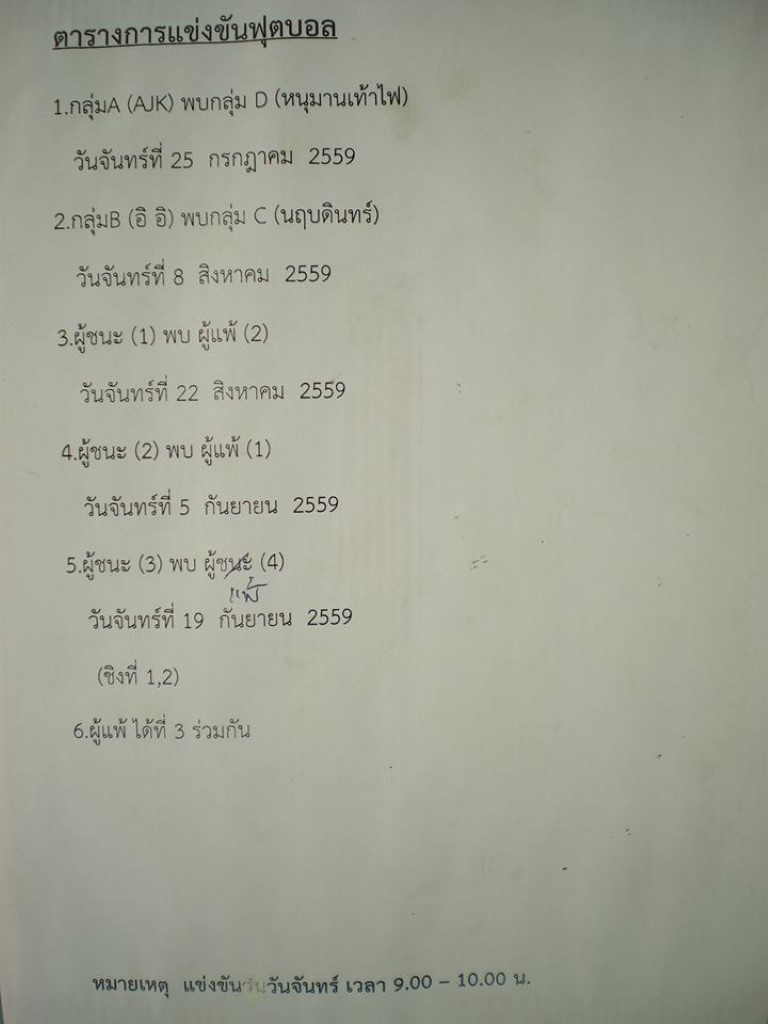 ตารางการแข่งขันฟุตบอล
1.กลุ่มA (AJK) พบกลุ่ม D (หนุมานเท้าไฟ)
วันจันทร์ที่ 25 กรกฎาคม 2559
2.กลุ่มB (อิ อิ) พบกลุ่ม C (นฤบดินทร์)
วันจันทร์ที่ 8 สิงหาคม 2559
3.ผู้ชนะ (1) พบ ผู้แพ้ (2)
วันจันทร์ที่ 22 สิงหาคม 2559
4.ผู้ชนะ (2) พบ ผู้แพ้ (1)
วันจันทร์ที่ 5 กันยายน 2559
5.ผู้ชนะ (3) พบ ผู้ชนะ (4)
แพ้
วันจันทร์ที่ 19 กันยายน 2559
(ชิงที่ 1,2)
6.ผู้แพ้ ได้ที่ 3 ร่วมกัน
หมายเหตุ แข่งขัน วันจันทร์ เวลา 9.00 – 10.00 น.